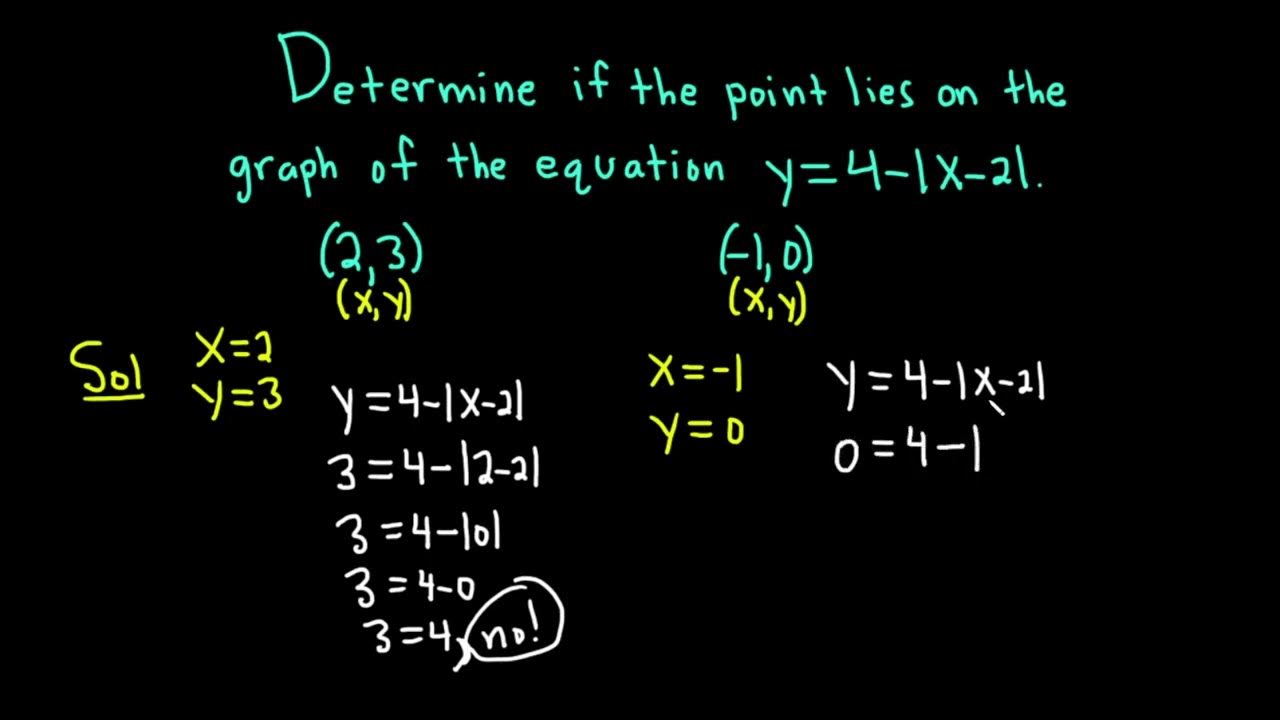 Determine if the point lies on the
graph of the equation y=4-|x-2|.
(2,3)
(x,y)
(-1,0)
(x,y)
Sol
x=2
y=3
y=4-|x-2|
3=4-|2-2|
3=4-|0|
3=4-0
3=4, no!
x=-1
y=0
y=4-|x-2|
0=4-|